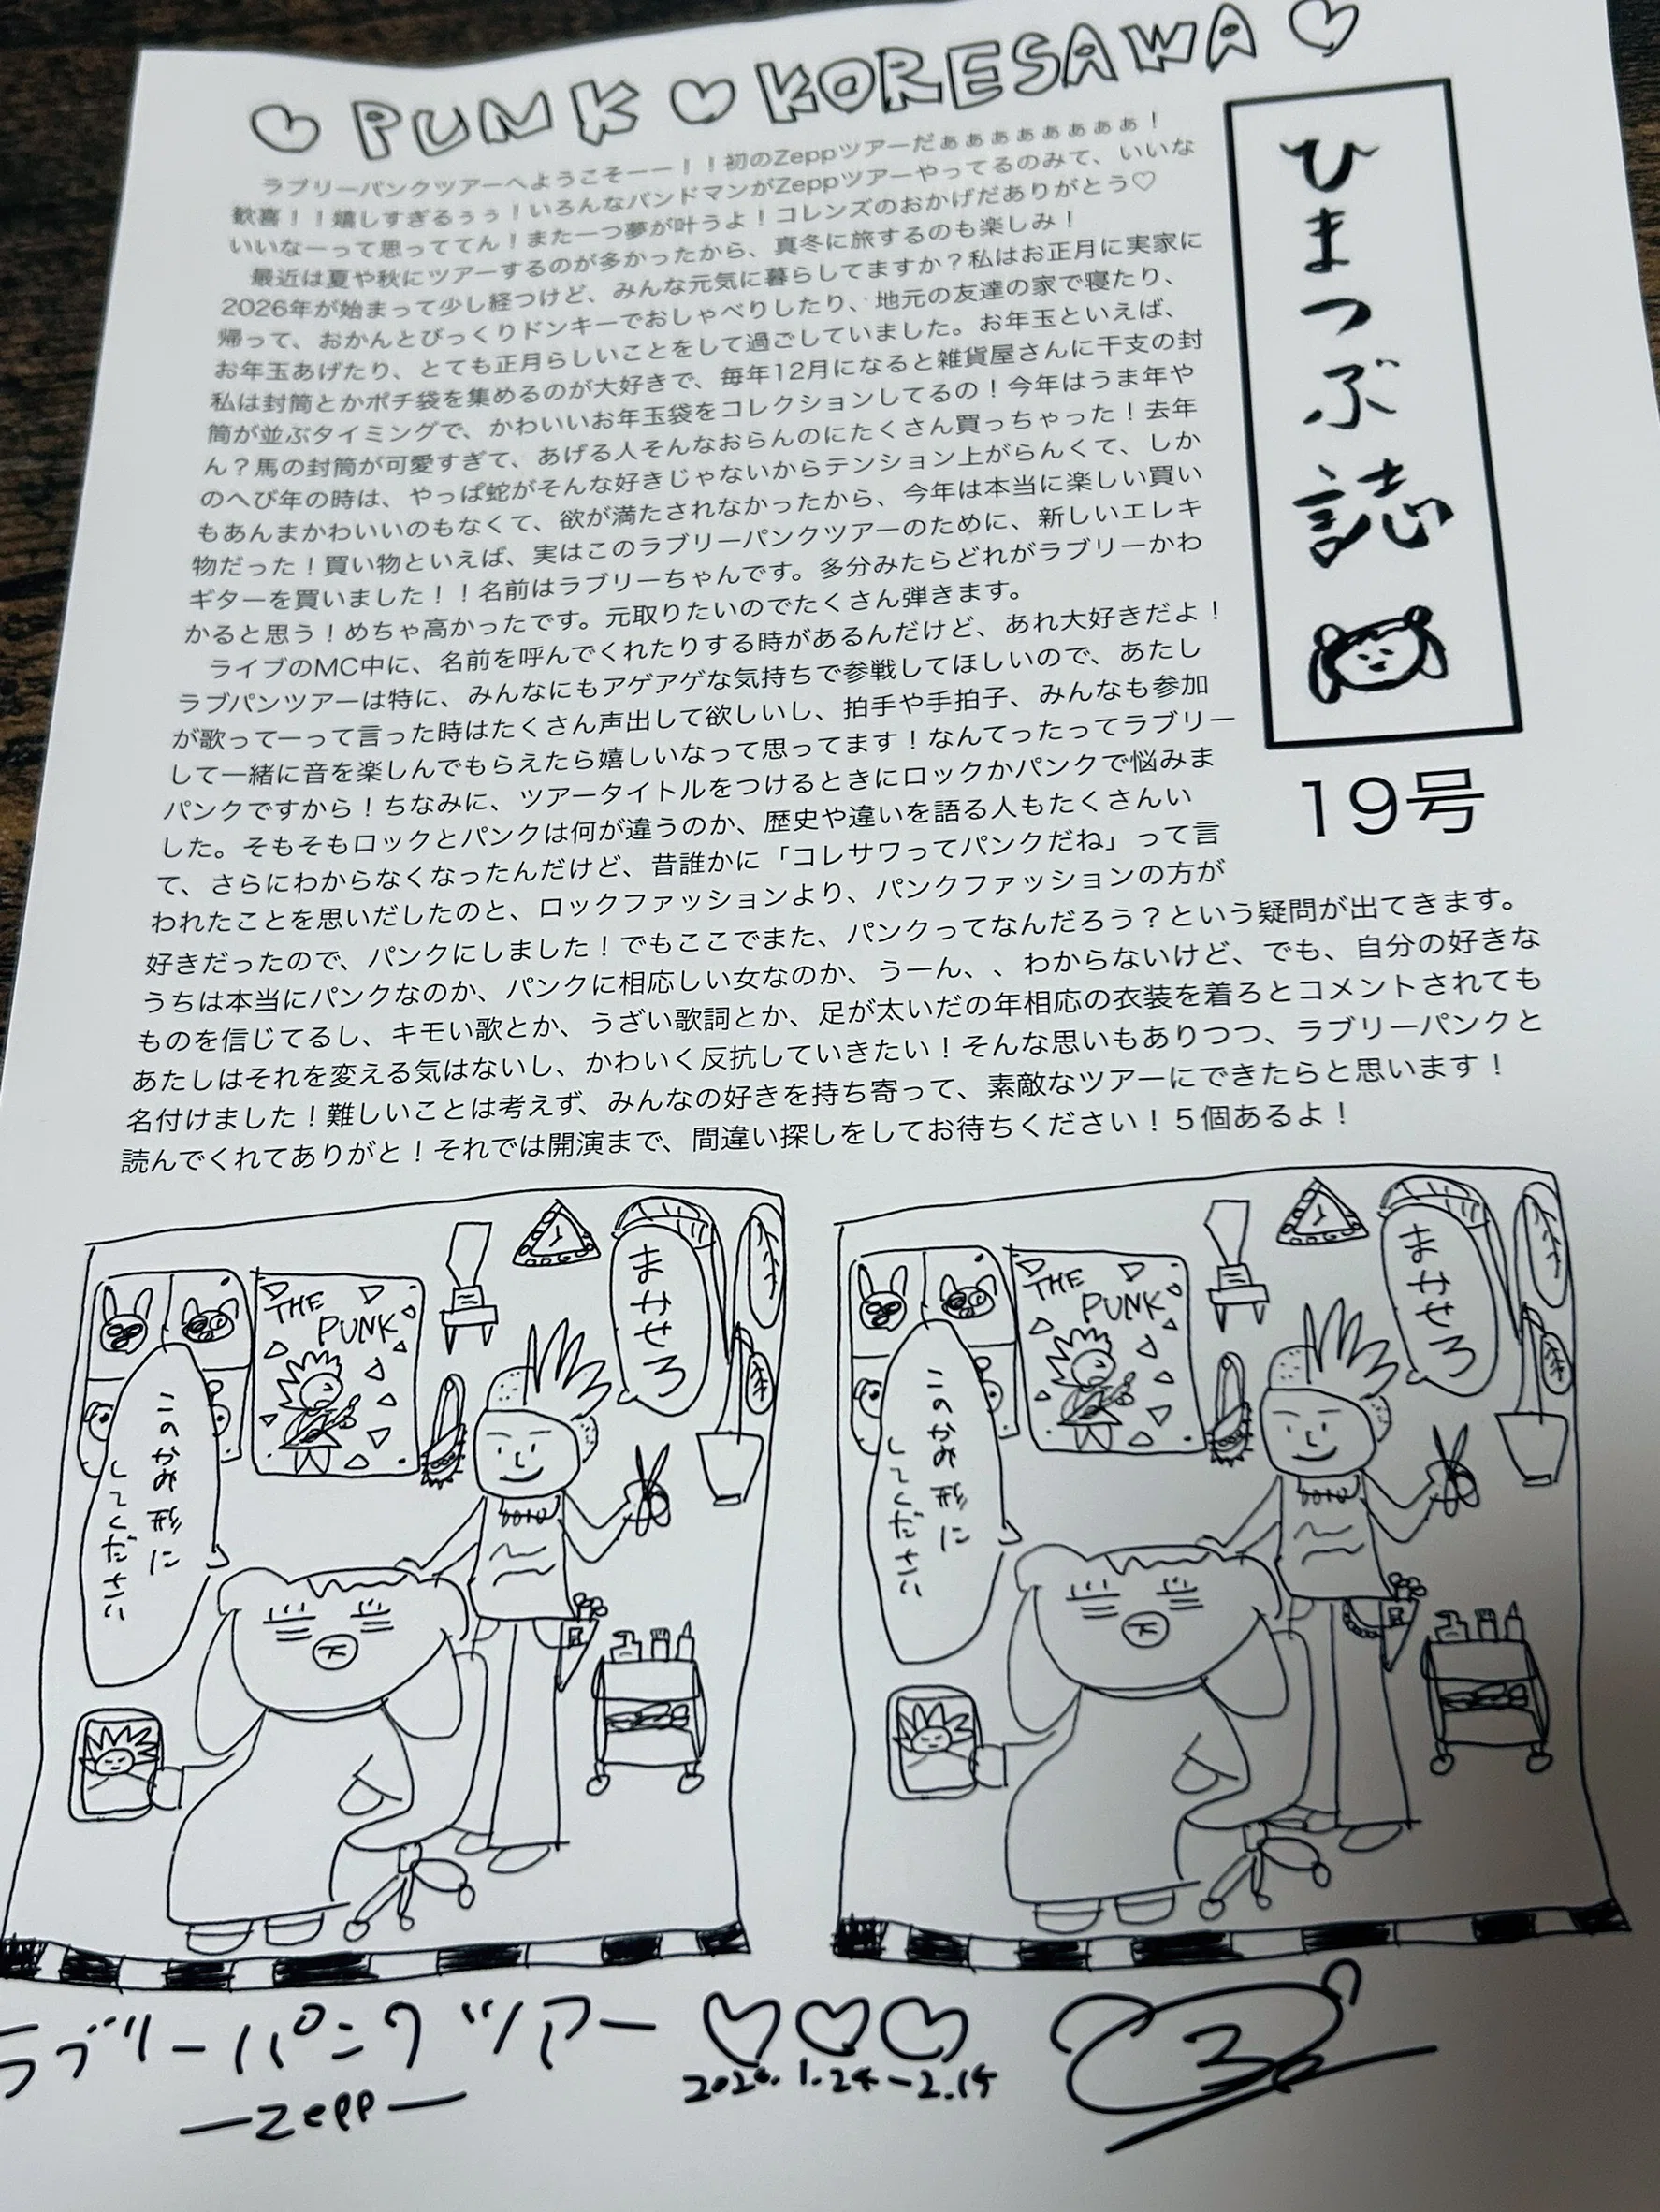 ♡ PUNK ♡ KORESAWA ♡
ひまつぶ誌
19号
ラブリーパンクツアーへようこそーー！！初のZeppツアーだぁぁぁぁぁぁぁぁぁ！
歓喜！！嬉しすぎるぅぅ！いろんなバンドマンがZeppツアーやってるのみて、いいな
いいなーって思っててん！また一つ夢が叶うよ！コレンズのおかげだありがとう♡
最近は夏や秋にツアーするのが多かったから、真冬に旅するのも楽しみ！
2026年が始まって少し経つけど、みんな元気に暮らしてますか？私はお正月に実家に
帰って、おかんとびっくりドンキーでおしゃべりしたり、地元の友達の家で寝たり、
お年玉あげたり、とても正月らしいことをして過ごしていました。お年玉といえば、
私は封筒とかポチ袋を集めるのが大好きで、毎年12月になると雑貨屋さんに干支の封
筒が並ぶタイミングで、かわいいお年玉袋をコレクションしてるの！今年はうま年や
ん？馬の封筒が可愛すぎて、あげる人そんなおらんのにたくさん買っちゃった！去年
のへび年の時は、やっぱ蛇がそんな好きじゃないからテンション上がらんくて、しか
もあんまかわいいのもなくて、欲が満たされなかったから、今年は本当に楽しい買い
物だった！買い物といえば、実はこのラブリーパンクツアーのために、新しいエレキ
ギターを買いました！！名前はラブリーちゃんです。多分みたらどれがラブリーかわ
かると思う！めちゃ高かったです。元取りたいのでたくさん弾きます。
ライブのMC中に、名前を呼んでくれたりする時があるんだけど、あれ大好きだよ！
ラブパンツアーは特に、みんなにもアゲアゲな気持ちで参戦してほしいので、あたし
が歌ってーって言った時はたくさん声出して欲しいし、拍手や手拍子、みんなも参加
して一緒に音を楽しんでもらえたら嬉しいなって思ってます！なんてったってラブリー
パンクですから！ちなみに、ツアータイトルをつけるときにロックかパンクで悩みま
した。そもそもロックとパンクは何が違うのか、歴史や違いを語る人もたくさんい
て、さらにわからなくなったんだけど、昔誰かに「コレサワってパンクだね」って言
われたことを思いだしたのと、ロックファッションより、パンクファッションの方が
好きだったので、パンクにしました！でもここでまた、パンクってなんだろう？という疑問が出てきます。
うちは本当にパンクなのか、パンクに相応しい女なのか、うーん、、わからないけど、でも、自分の好きな
ものを信じてるし、キモい歌とか、うざい歌詞とか、足が太いだの年相応の衣装を着ろとコメントされても
あたしはそれを変える気はないし、かわいく反抗していきたい！そんな思いもありつつ、ラブリーパンクと
名付けました！難しいことは考えず、みんなの好きを持ち寄って、素敵なツアーにできたらと思います！
読んでくれてありがと！それでは開演まで、間違い探しをしてお待ちください！５個あるよ！
THE
PUNK
まかせろ
このかみ形に
してください
THE
PUNK
まかせろ
このかみ形に
してください
ラブリーパンクツアー ♡♡♡
—Zepp—
2026.1.24-2.15